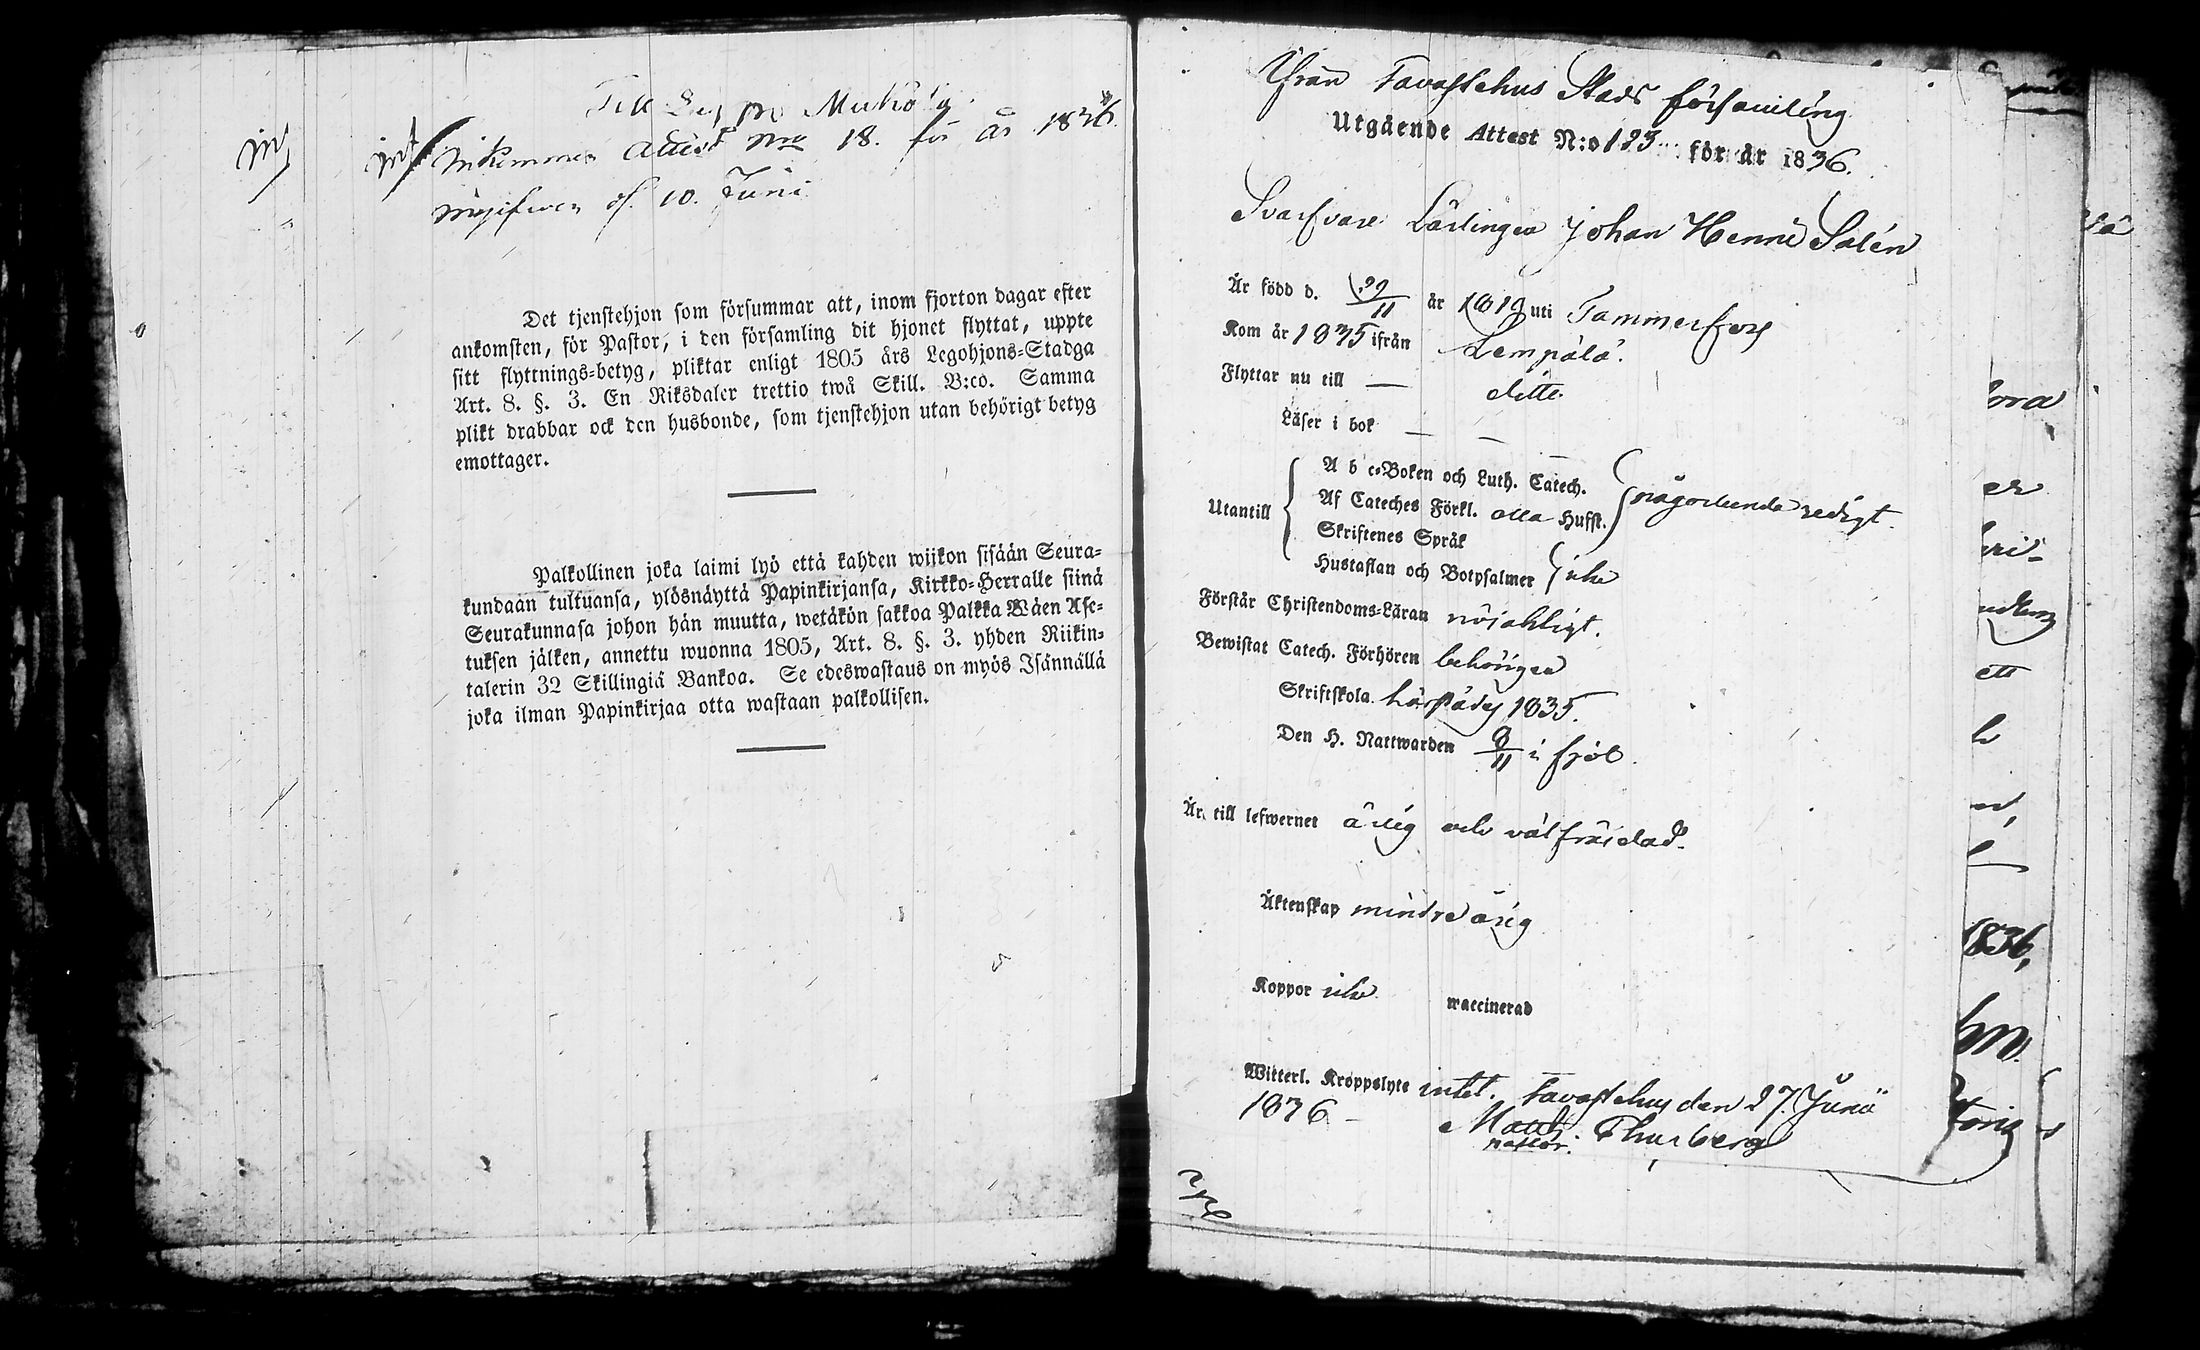 Till
Inkommen Attest No 18. för år 1836.
ingifwen d. 10. Juni
Det tjenstehjon som försummar att, inom fjorton dagar efter
ankomsten, för Pastor, i den församling dit hjonet flyttat, uppte
sitt flyttnings-betyg, pliktar enligt 1805 års Legohjons-Stadga
Art. 8. §. 3. En Riksdaler trettio twå Skill. B:co. Samma
plikt drabbar ock den husbonde, som tjenstehjon utan behörigt betyg
emottager.
Palkollinen joka laimi lyö että kahden wiikon sisään Seura-
kundaan tultuansa, ylösnäyttä Papinkirjansa, Kirkko-Herralle siinä
Seurakunnasa johon hän muutta, wetäkön sakkoa Palkka Wäen Ase-
tuksen jälken, annettu wuonna 1805, Art. 8. §. 3. yhden Riikin-
talerin 32 Skillingiä Bankoa. Se edeswastaus on myös Isännällä
joka ilman Papinkirjaa otta wastaan palkollisen.
Ifrån Tavastehus Stads församling
Utgående Attest N:o 123 för år 1836.
Svarfvare Lärlingen Johan Henric Salén
Är född d. 29/11 år 1819 uti Tammerfors
Kom år 1835 ifrån Lempälä.
Flyttar nu till — ditto
Läser i bok — —
A b c-Boken och Luth. Catech.
Utantill Af Cateches Förkl. alla Hufst. någorlunda redigt.
Skriftenes Språk
Hustaflan och Botpsalmer icke
Förstår Christendoms-Läran nöjaktigt.
Bewistat Catech. Förhören behörigen
Skriftskola härstädes 1835.
Den H. Nattwarden 8/11 i fjol.
Är till lefwernet ärlig och välfräjdad.
Äktenskap minderårig
Koppor icke waccinerad
Witterl. Kroppslyte intet. Tavastehus den 27. Junii
1836 —
pastor.
1836,